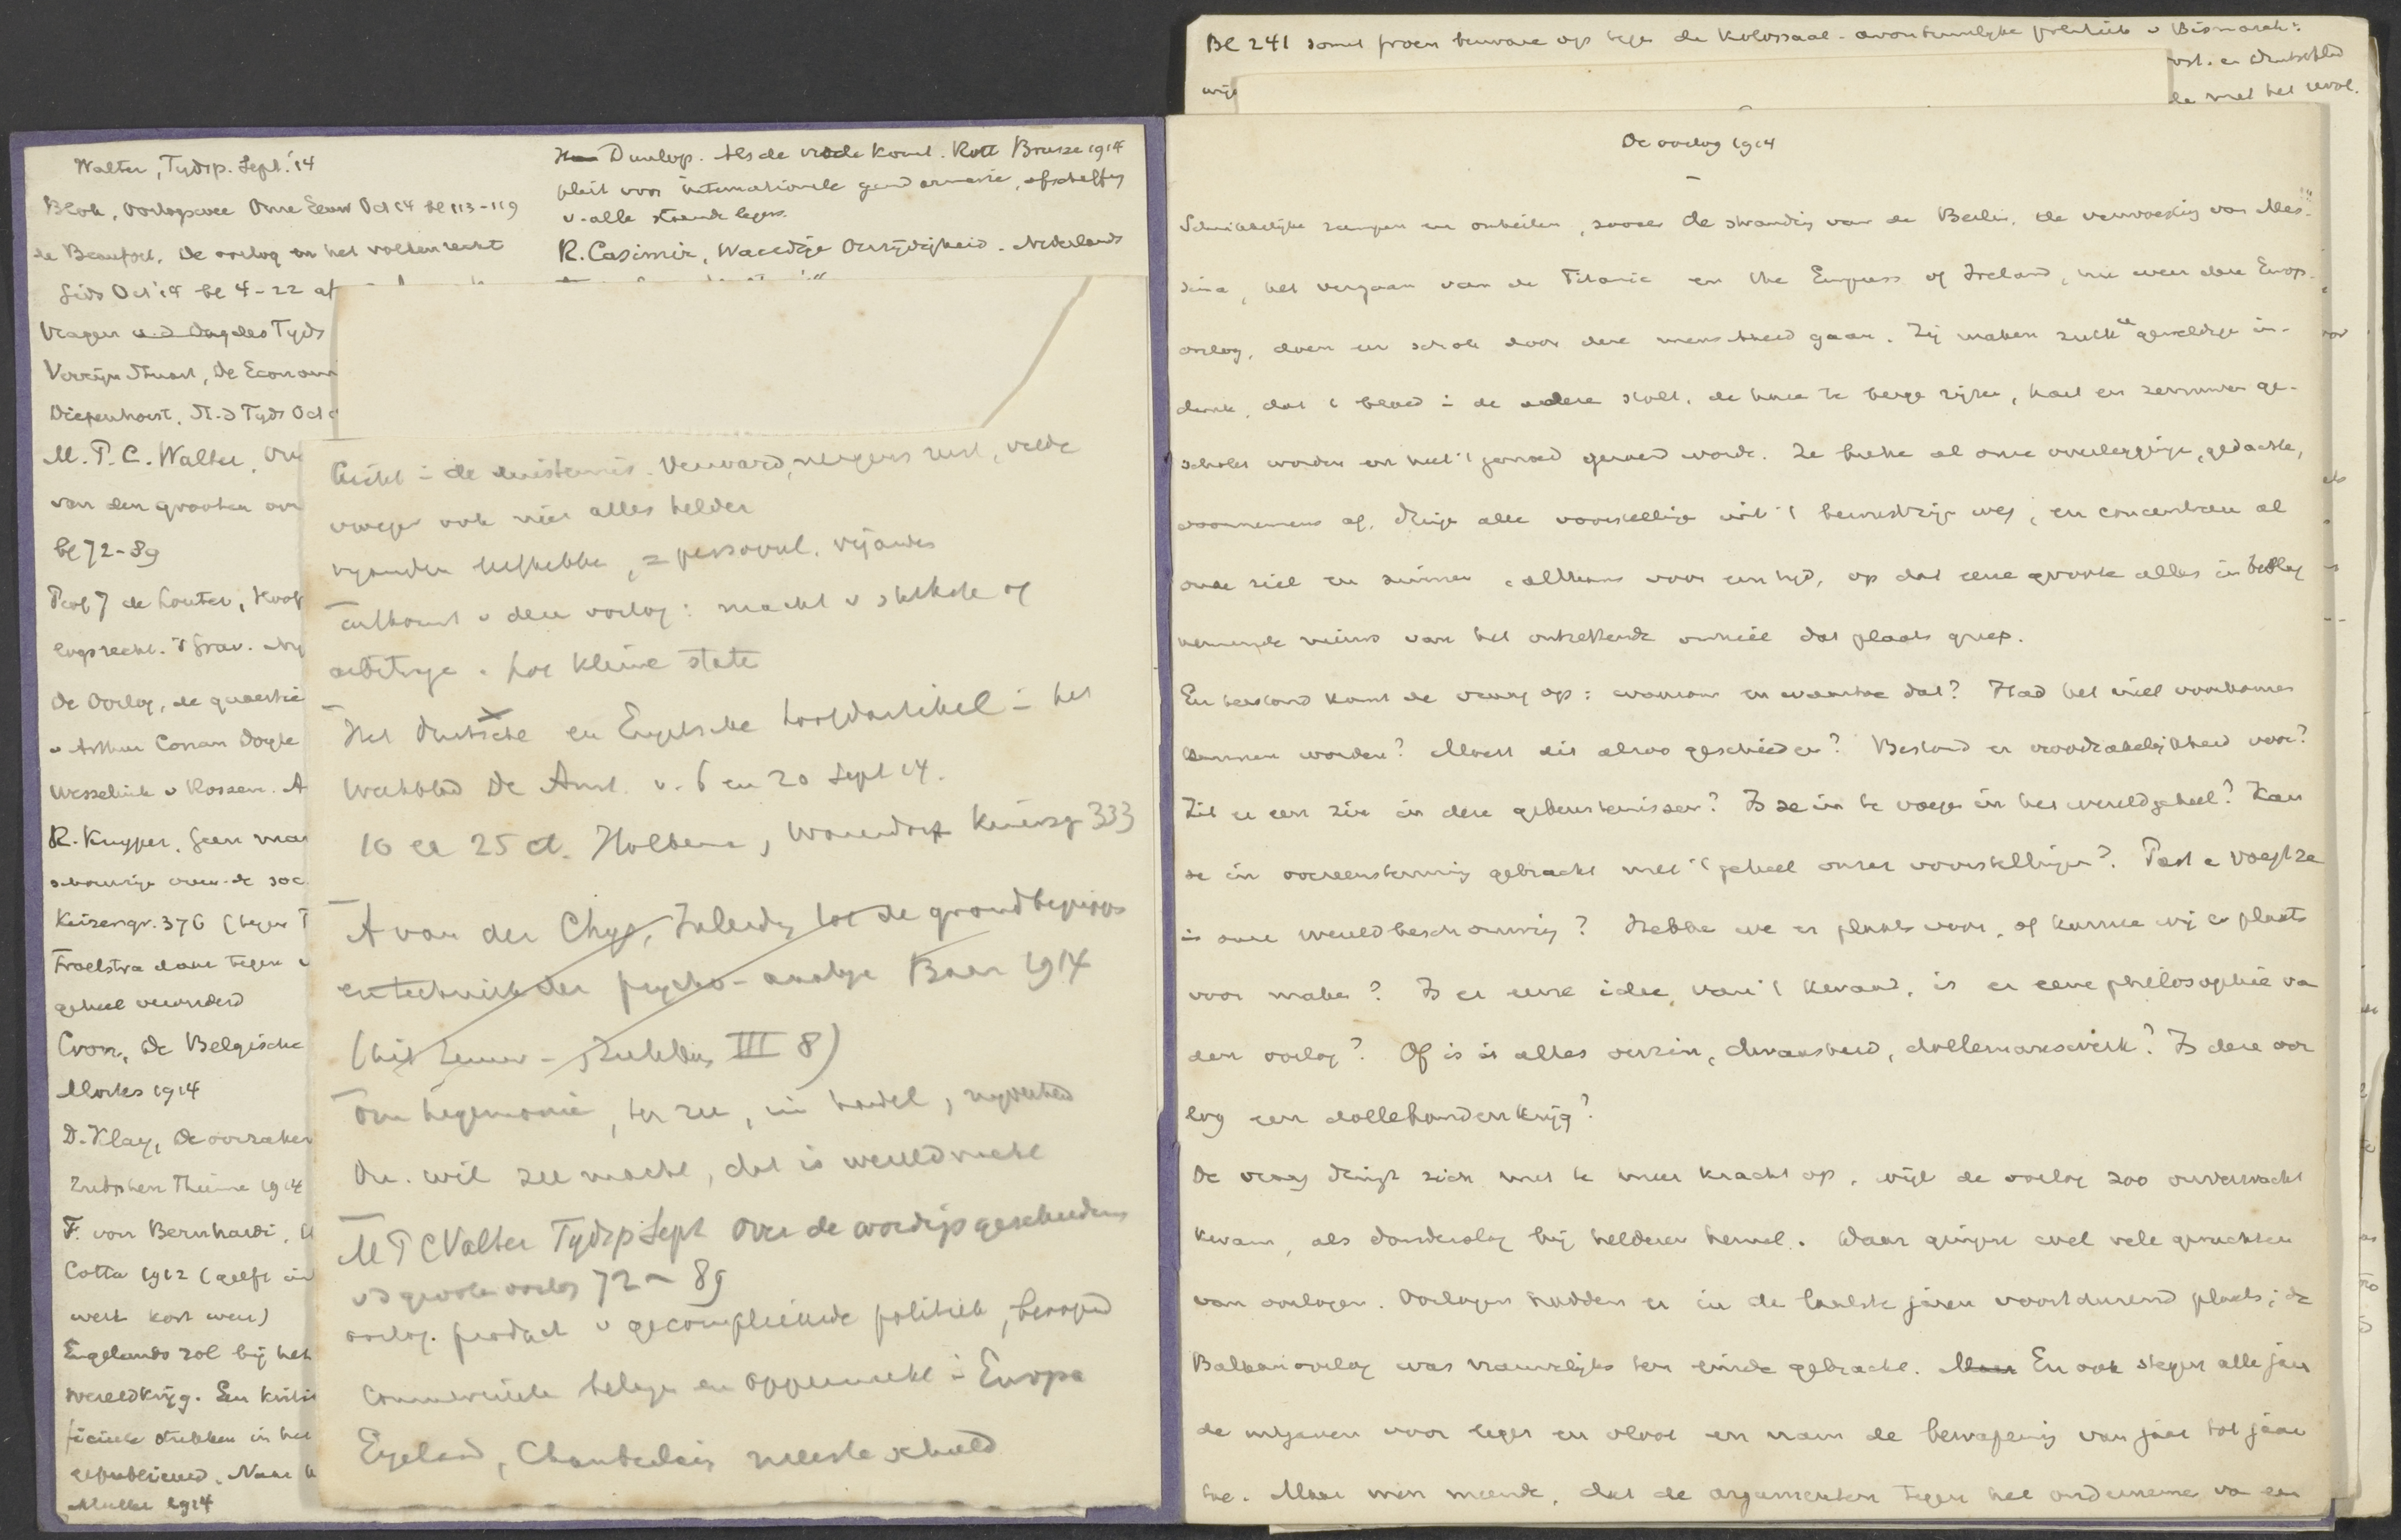 Walter, Tydsp. Sept. '14
Blok, Oorlogswee Onze Eeuw Oct 14 bl 113-119
de Beaufort, De oorlog en het volkenrecht
Gids Oct '14 bl 4-22 af
Vragen u.d. Dag des Tyds
Verrijn Stuart, De Econom
Diepenhorst, St. d Tyds Oct
M.T.C. Walter,
van den grooten
bl 72-89
Prof J de Louter,
De Oorlog, de quaestie
v Arthur Conan Doyle
Wesselink v Rossem. A
R. Kuyper, Geen
over de soc.
Keizersgr. 376 (tegen T
Troelstra tegen
geheel veranderd
De Belgische
1914
D. Klay, De oorzaken
Zutphen Thieme 1914
F. von Bernhardi, U
Cotta 1912 (geeft in
werk kort weer)
Engelands rol bij het
wereldkrijg. Een
in het
gepubliceerd. Naar
Muller 1914
Dunlop. Als de vrede komt. Rott Brusse 1914
pleit voor internationale gendarmerie, afschaffing
v. alle staande legers.
R. Casimir, Waardige Onzijdigheid. Nederlands
de duisternis. Verward, nergens rust, vrede
vroeger ook niet alles helder
vyanden liefhebben, = personl. vijanden
Toekomst v den oorlog: macht v
arbitrage. hoe kleine staten
Het Duitsche en Engelsche hoofdartikel in het
Weekblad De Amst. v. 6 en 20 Sept 14.
10 en 25 ct. Holkema, Warendorf Keizersgr 333
A van der Chys, Inleiding tot de grondbegrippen
en techniek der psycho-analyse Baarn 1914
III 8)
Om hegemonie, ter zee, in handel, nyverheid
Du. wil zee macht, dat is wereldmacht
M T C Walter Tydsp Sept Over de wordingsgeschiedenis
v d groote oorlog 72-89
oorlog. product v gecompliceerde politiek,
commercieele belangen en oppermacht in Europa
Engeland, Chamberlain meeste schuld
Bl 241 somt Troen bewaren op tegen de kolossaal-avontuurlyke politiek v Bismarck:
en Duitschland
met het
De oorlog 1914
Schrikkelijke rampen en onheilen, zooals de stranding van de Berlin, de verwoesting van Mes-
sina, het vergaan van de Titanic en the Empress of Ireland, nu weer deze Europ.
oorlog, doen een schok door deze menschheid gaan. Zij maken zulk een geweldige in-
druk, dat 't bloed in de aderen stolt, de haren te berge rijzen, hart en zenuwen ge-
schokt worden en heel 't gemoed geroerd wordt. Ze breken al onze overleggingen, gedachten,
voornemens af, dringen alle voorstellingen uit 't bewustzijn weg, en concentreeren al
onze ziel en zinnen, althans voor een tijd, op dat eene groote alles in beslag
nemende nieuws van het ontzettende onheil dat plaats greep.
En terstond komt de vraag op: waarom en waartoe dat? Had het niet voorkomen
kunnen worden? Moest dit alzoo geschieden? Bestond er noodzakelijkheid voor?
Zit er een zin in deze gebeurtenissen? Is ze in te voegen in het wereldgeheel? Kan
ze in overeenstemming gebracht met 't geheel onzer voorstellingen? Past en voegt ze
in onze wereldbeschouwing? Hebben we er plaats voor, of kunnen wij er plaats
voor maken? Is er eene idee, van 't kwaad, is er eene philosophie van
den oorlog? Of is is alles onzin, dwaasheid, dollemanswerk? Is deze oor
log een dollehondenkrijg?
De vraag dringt zich met te meer kracht op, wijl de oorlog zoo onverwacht
kwam, als donderslag bij helderen hemel. Waar gingen wel vele geruchten
van oorlogen. Oorlogen hadden er in de laatste jaren voortdurend plaats; de
Balkanoorlog was nauwelijks ten einde gebracht. En ook stegen alle jaren
de uitgaven voor leger en vloot en nam de bewapening van jaar tot jaar
toe. Maar men meende, dat de argumenten tegen het ondernemen van een